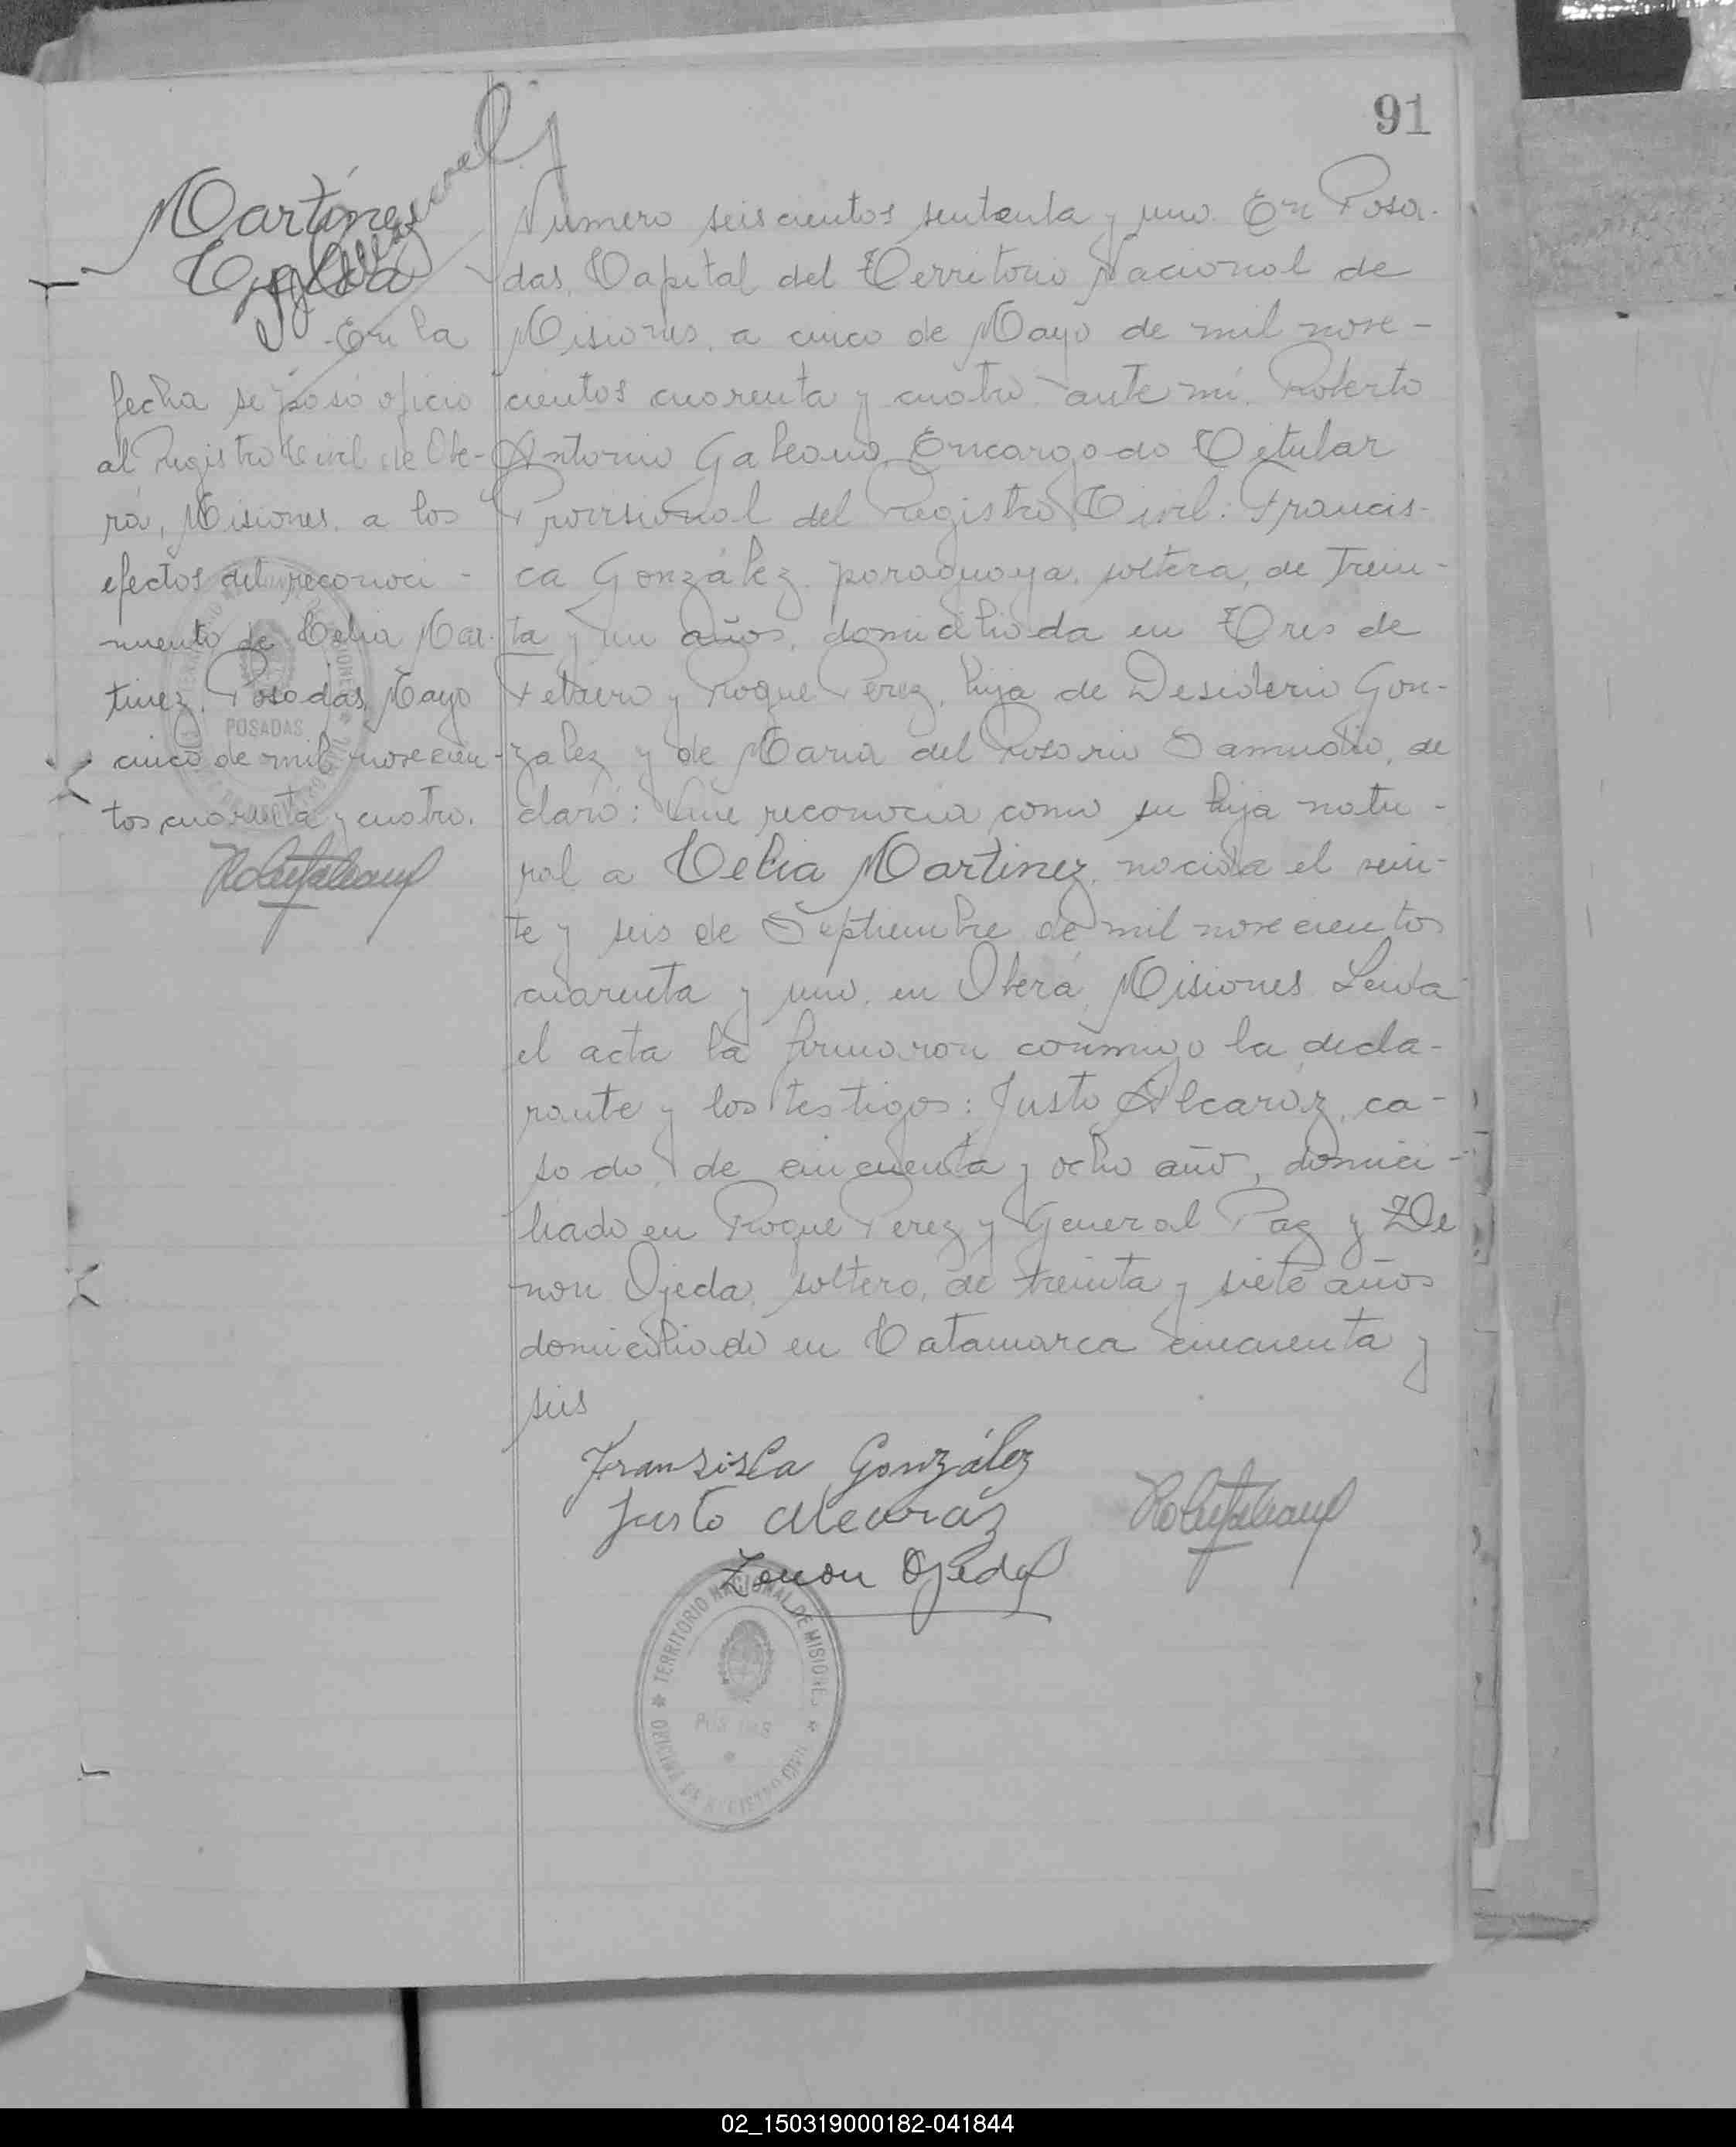 91
Martínez
Celia
En la
fecha se pasó oficio
al Registro Civil de Obe-
rá, Misiones, a los
efectos del reconoci-
miento de Celia Mar-
tinez. Posadas, Mayo
cinco de mil novecien-
tos cuarenta y cuatro.
Numero seiscientos setenta y uno. En Posa-
das, Capital del Territorio Nacional de
Misiones, a cinco de Mayo de mil nove-
cientos cuarenta y cuatro ante mi, Roberto
Antonio Galeano, Encargado Titular
Provisional del Registro Civil: Francis-
ca González, paraguaya, soltera, de Trein-
ta y un años, domiciliada en Tres de
Febrero y Roque Perez, hija de Desiderio Gon-
zalez y de Maria del Rosario Samudio, de
claró: Que reconocia como su hija natu-
ral a Celia Martinez, nacida el vein-
te y seis de Septiembre de mil novecientos
cuarenta y uno, en Oberá, Misiones Leida
el acta la firmaron conmigo la decla-
rante y los testigos: Justo Alcaráz, ca-
sado, de cincuenta y ocho año, domici-
liado en Roque Perez y General Paz y Ze
non Ojeda, soltero, de treinta y siete años
domiciliado en Catamarca cincuenta y
seis
Fransiska González
Justo Alcaráz
Zenon Ojeda
TERRITORIO NACIONAL DE MISIONES
POSADAS
OFICINA DE REGISTRO CIVIL
POSADAS
02_150319000182-041844